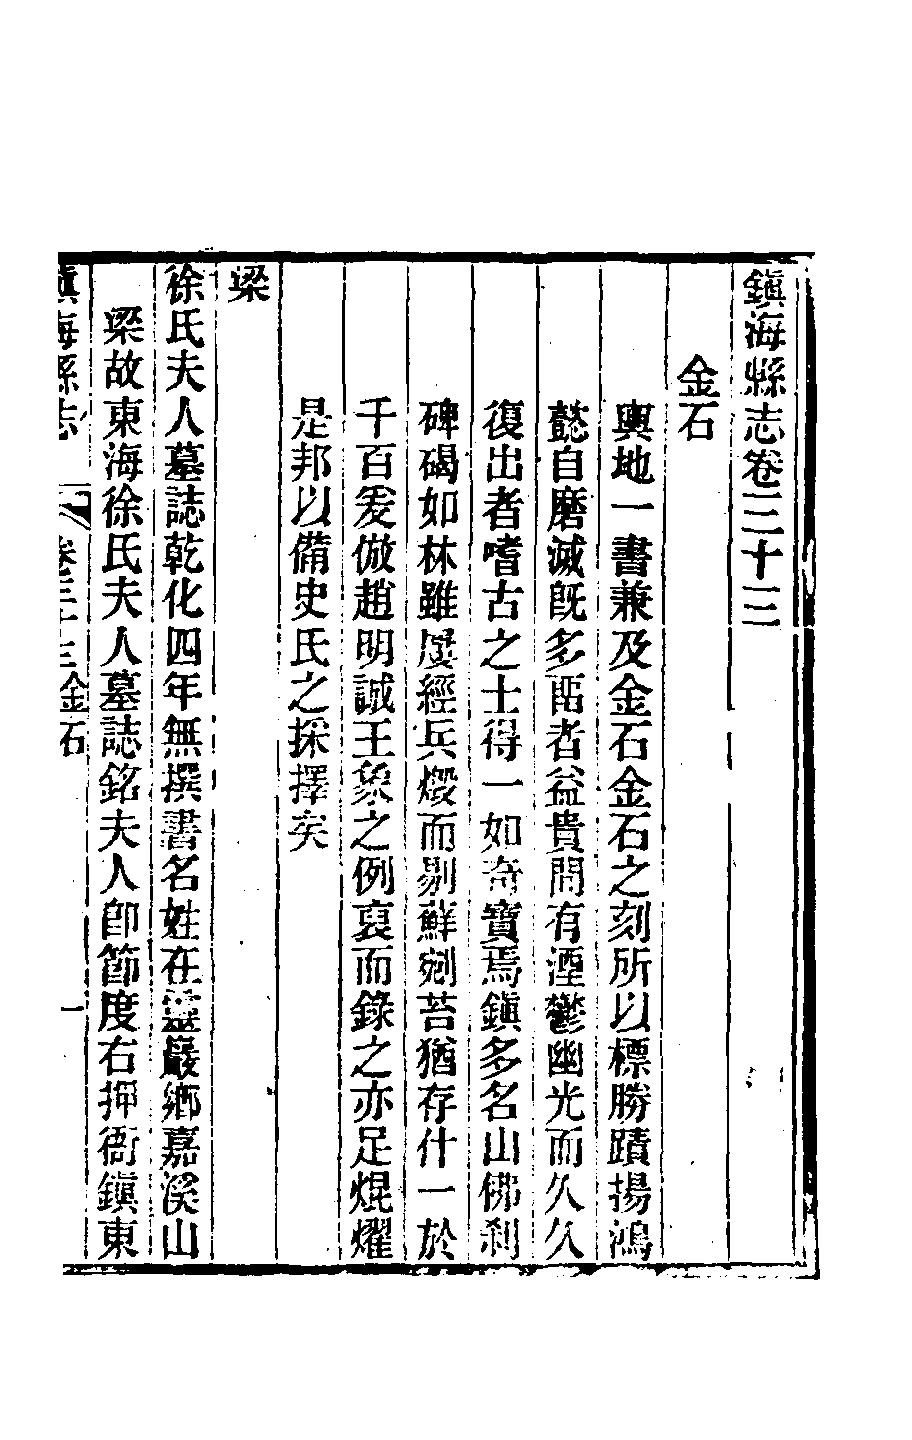 鎮海縣志卷三十三
金石
輿地一書兼及金石金石之刻所以標勝蹟揚鴻
懿自磨滅旣多而存者益貴間有湮鬱幽光而久久
復出者嗜古之士得一如奇寶焉鎮多名山佛刹
碑碣如林雖屢經兵燬而剔蘚剜苔猶存什一於
千百爰倣趙明誠王象之例裒而錄之亦足焜燿
是邦以備史氏之採擇矣
梁
徐氏夫人墓誌乾化四年無撰書名姓在靈巖鄉嘉溪山
梁故東海徐氏夫人墓誌銘夫人卽節度右押衙鎮東
鎮海縣志 卷三十三金石 一